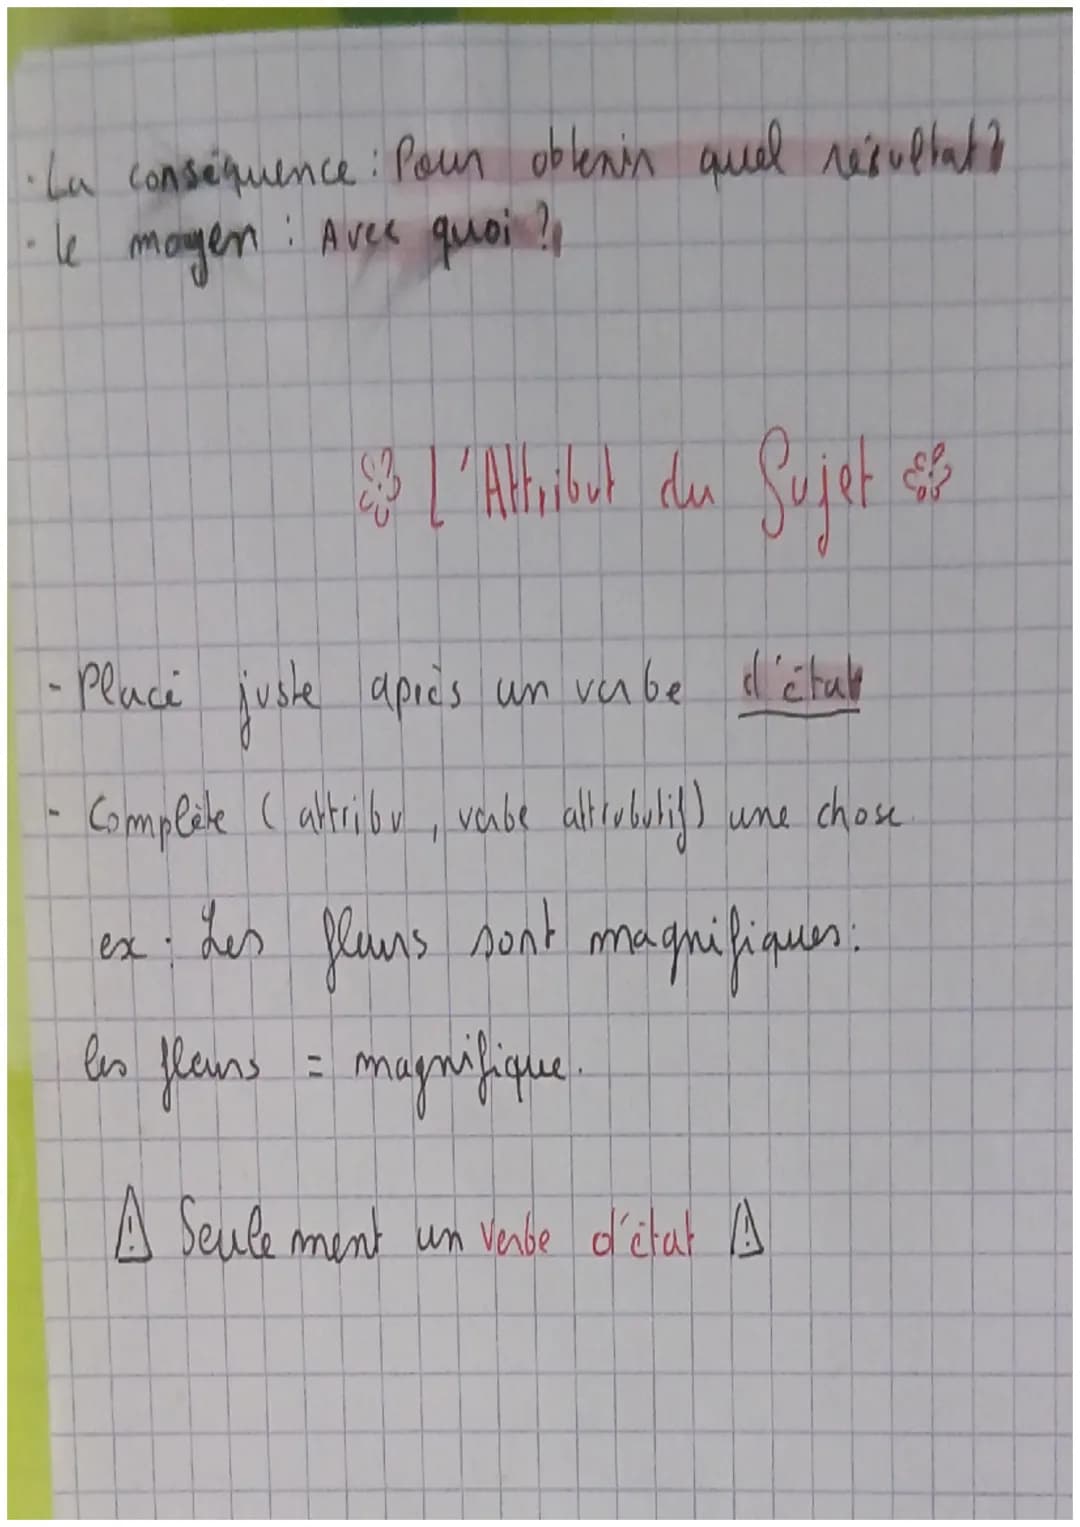 · La conséquence : Pour obtenir quel résultat ?
· le moyen : Avec quoi ?
L'Attribut du Sujet
- Placé juste après un verbe d'état
- Complète ( attribu , verbe attrubutif) une chose.
ex : Les fleurs sont magnifiques :
les fleurs = magnifique.
⚠ Seulement un verbe d'état ⚠